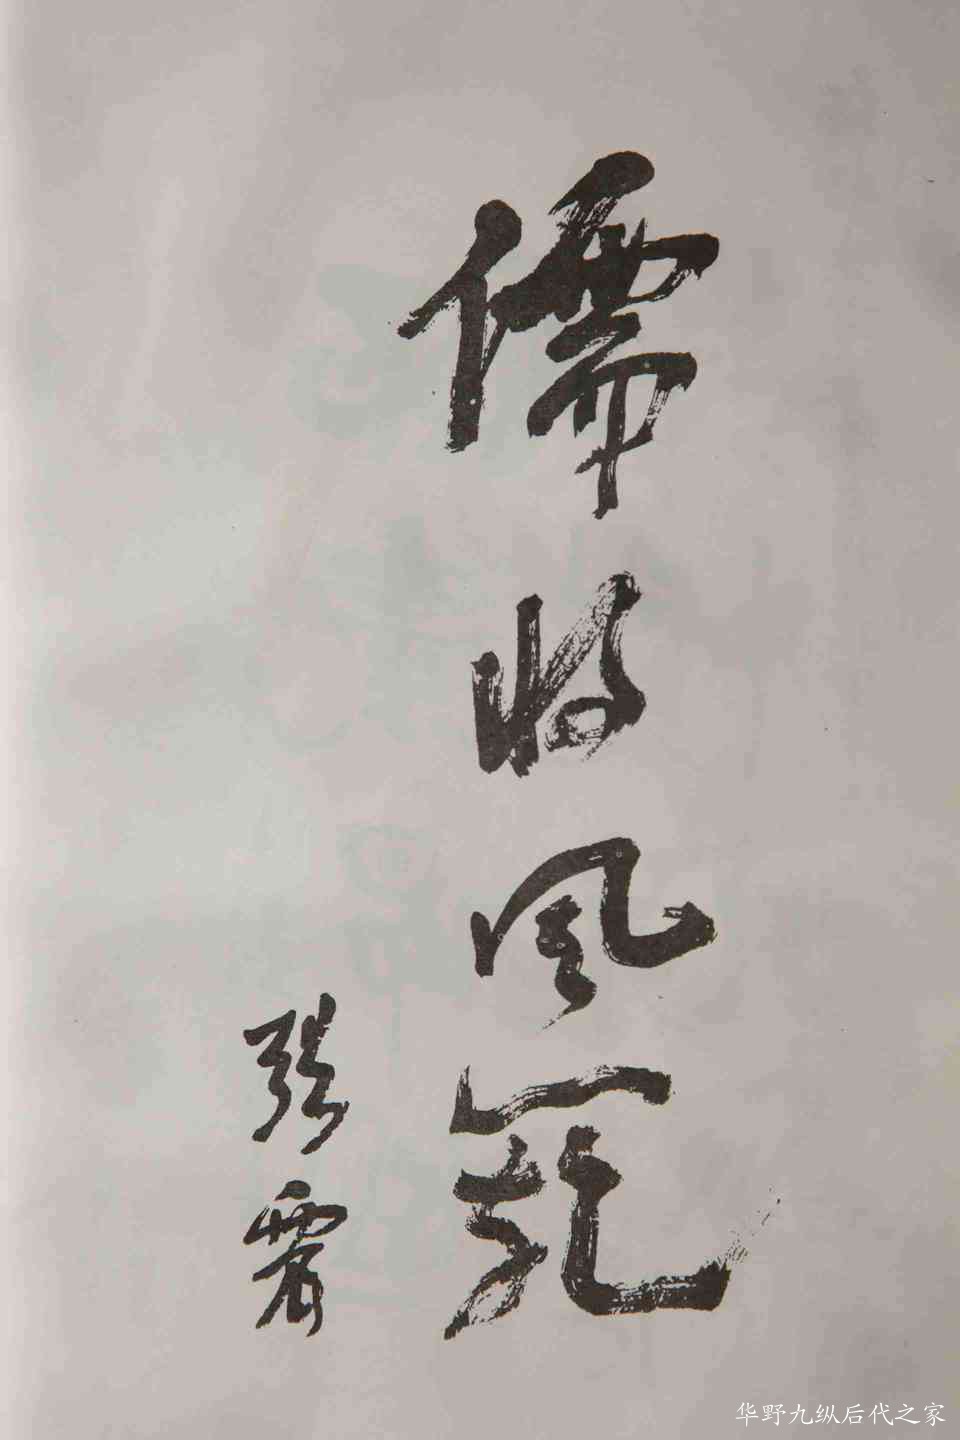 儒将风范
张震
华野九纵后代之家